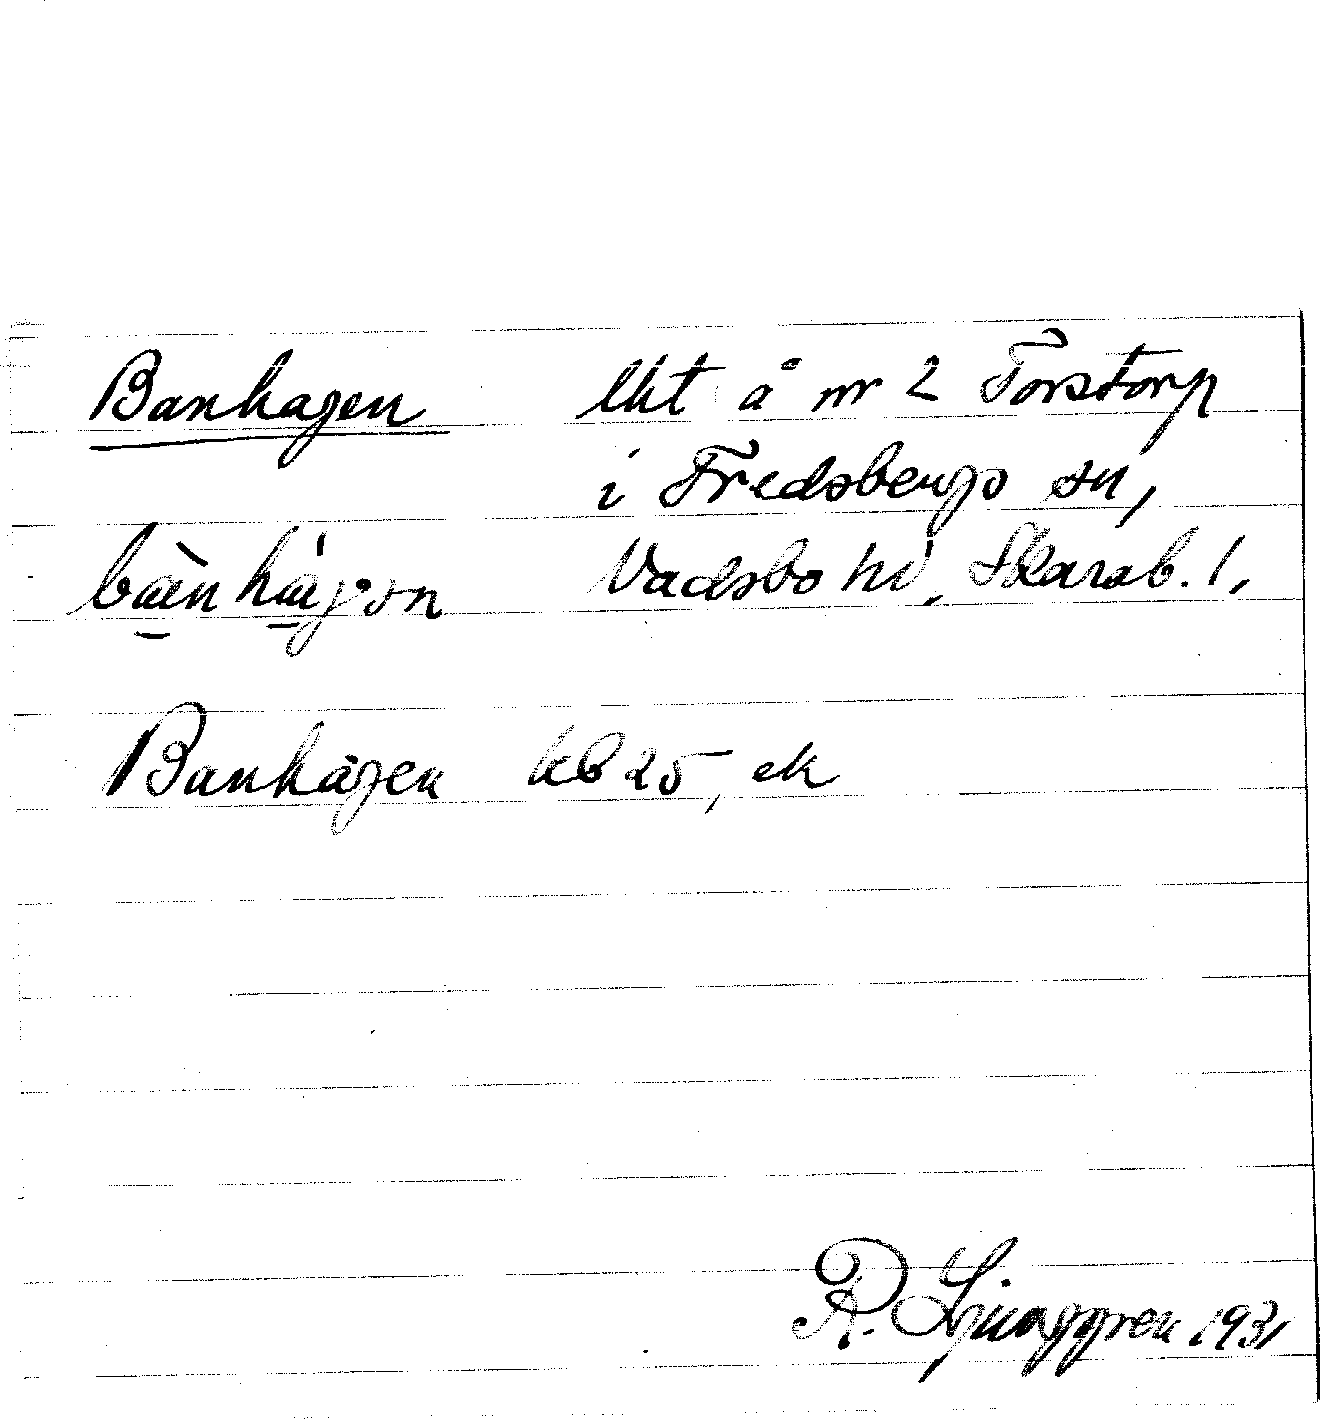 Banhagen lht å nr 2 Torstorp
i Fredsbergs sn,
Vadsbo hd, Skarab. l,
Banhagen kb 25, ek
R. Ljunggren 1931